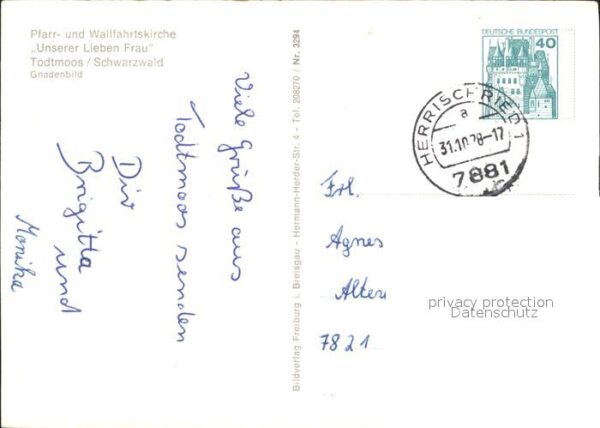 Pfarr- und Wallfahrtskirche
„Unserer Lieben Frau"
Todtmoos / Schwarzwald
Gnadenbild
Viele Grüße aus
Todtmoos senden
Dir
Brigitta
und
Monika
Bildverlag Freiburg i. Breisgau - Hermann-Herder-Str. 4 - Tel. 208270 / Nr. 3294
DEUTSCHE BUNDESPOST
40
HERRISCHRIED 1
a
31.10.78-17
7881
Frl.
Agnes
7821
privacy protection
Datenschutz